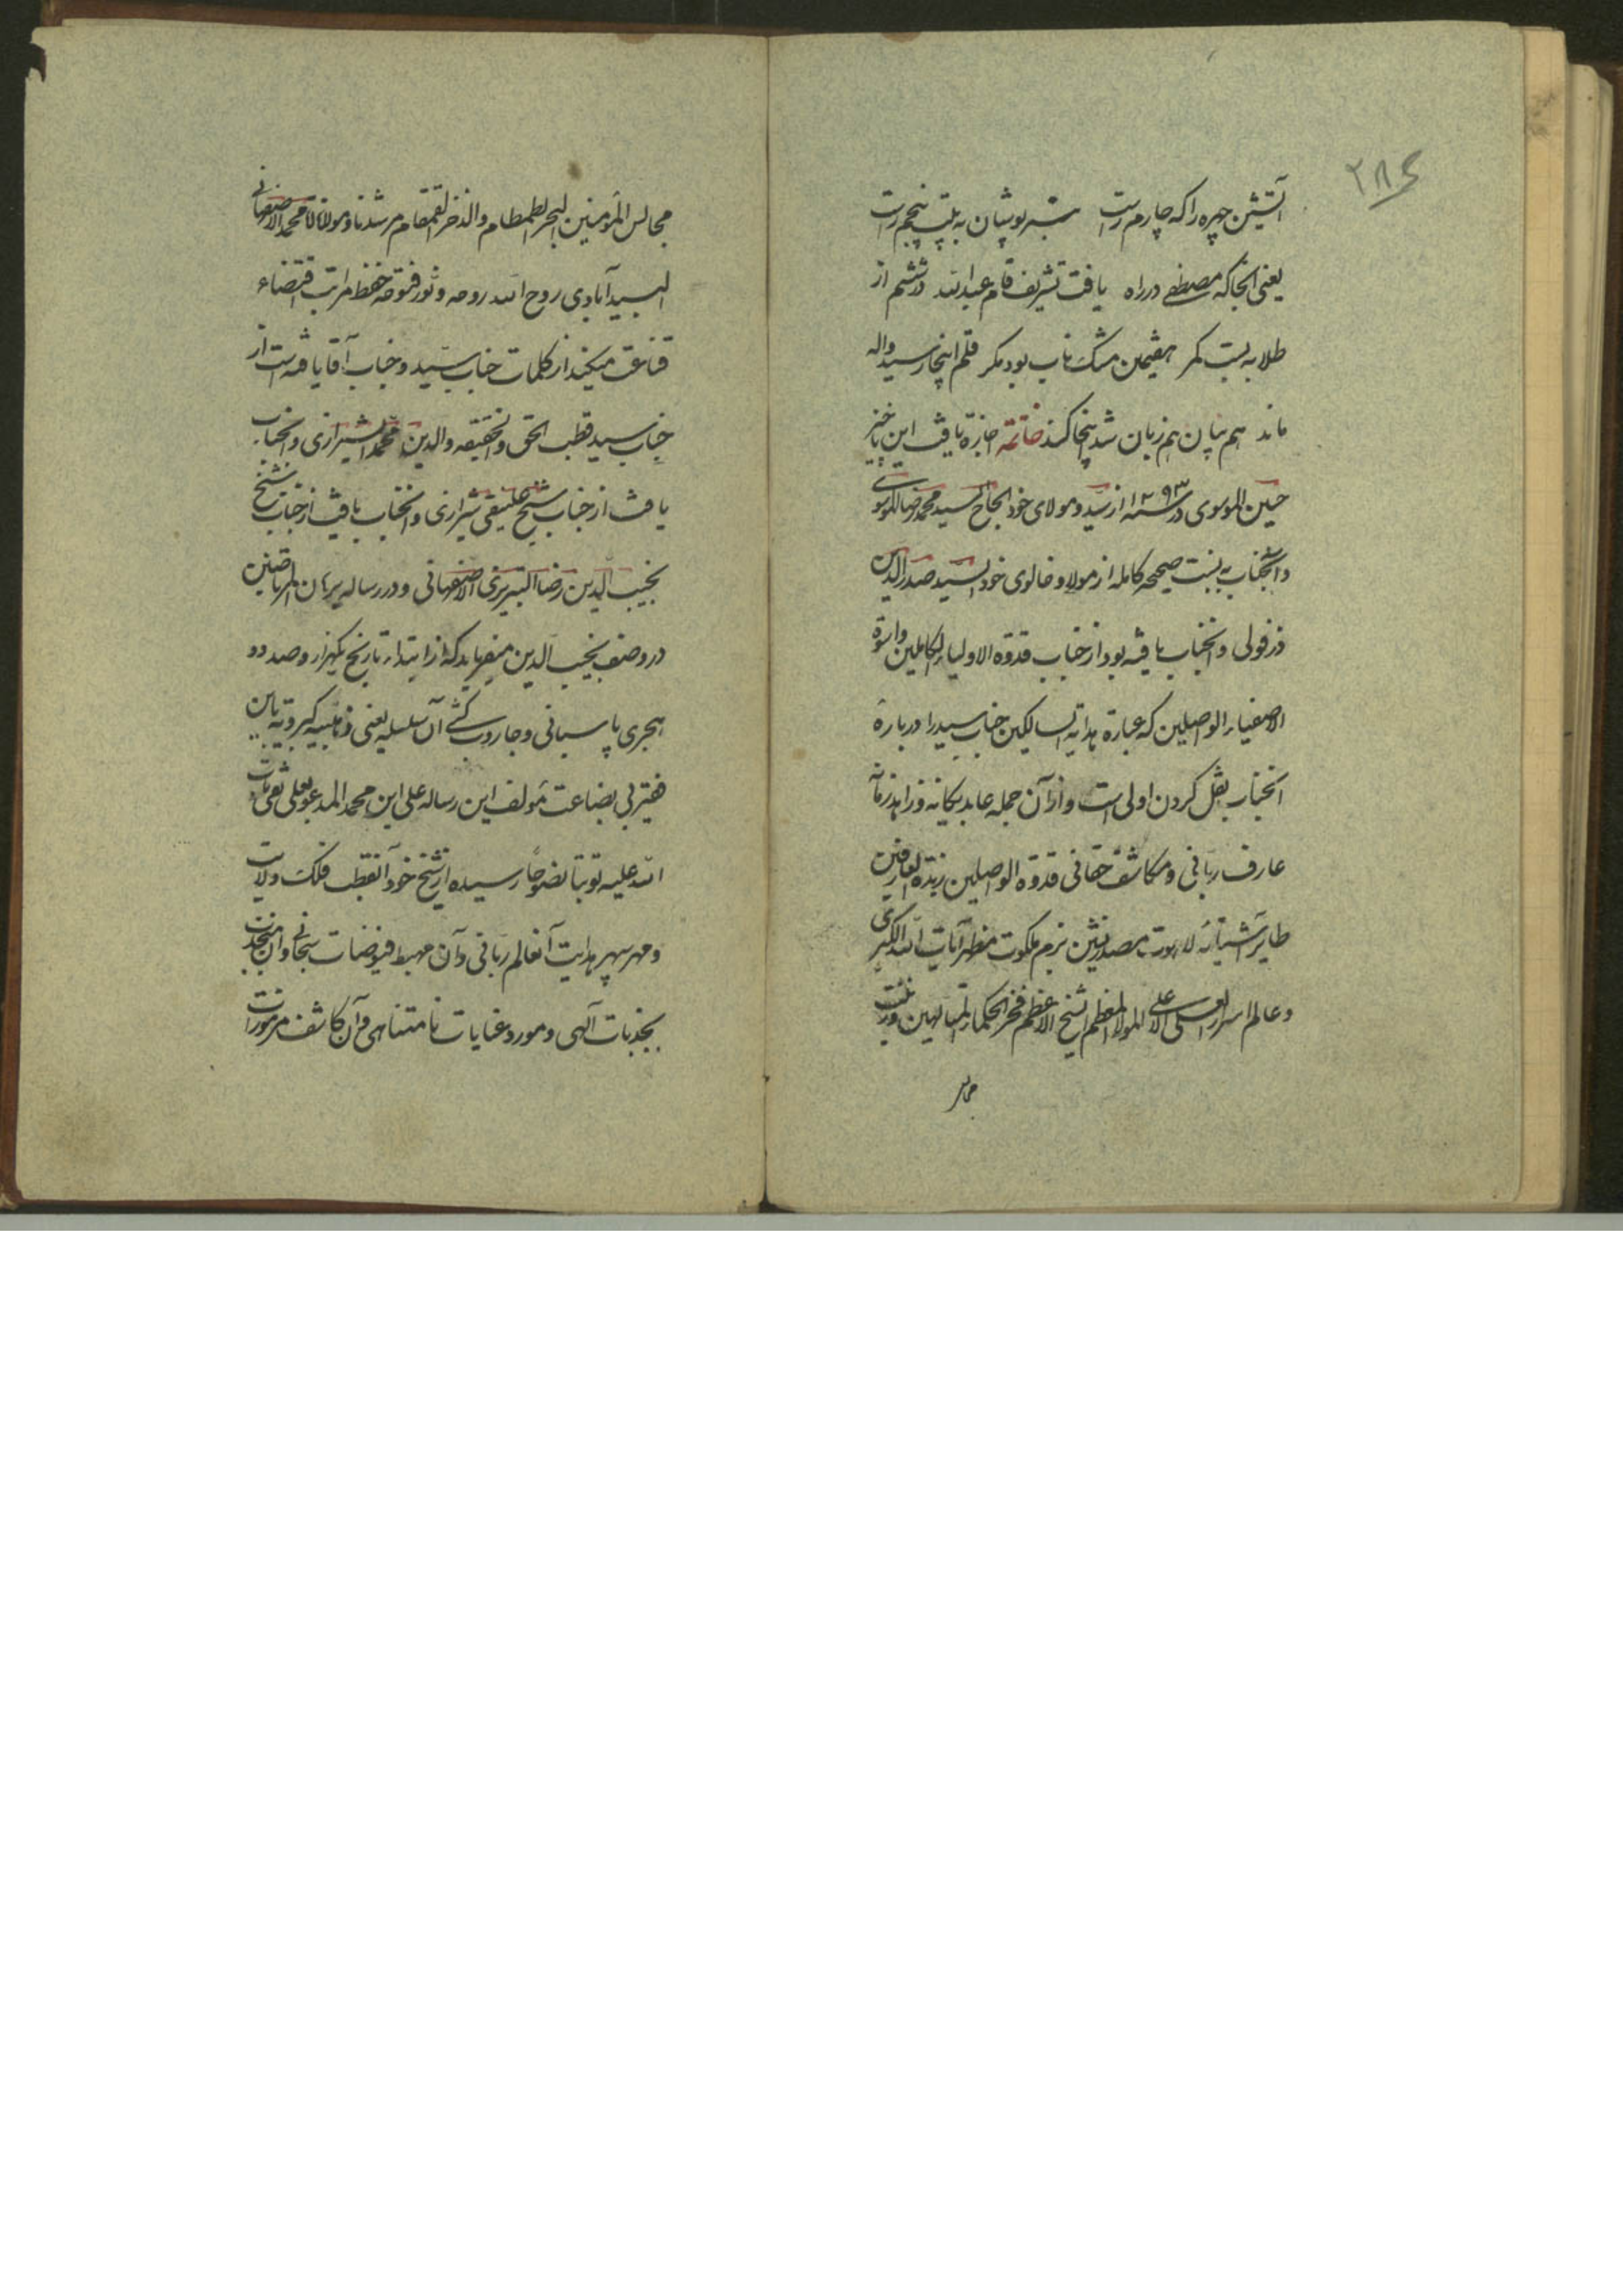 ۲۸۶
آتشین چهره را که چارم راست سبز پوشان به بلت پنجم راست
یعنی آنجا که مصطفی در راه یافت تشریف قام عبدالله در ششم از
طلا به بست کمر هفتمین مشک ناب بود مکر قلم اینجا رسید واله
ماند هم بیان هم زبان شد پنجا کند خاتمه اجازه یافت این ناخیز
حسین الموسوی در سنه ۱۲۹۳ از سید و مولای خود الحاج السید محمد رضا الموسوی
و آنجناب به نسبت صحیحه کامله از مولا و خالوی خود السید صدرالدین
دزفولی و آنجناب یافته بود از جناب قدوة الاولیاء الکاملین واسوة
الاصفیاء الواصلین که عبارة هدایة السالکین جناب سید را درباره
آنجناب نقل کردن اولی است و از آن جمله عابد یکانه و زاهد زمانه
عارف ربانی و مکاشف حقانی قدوة الواصلین زبدة العارفین
طایر آشیانه لاهوت مصدرنشین بزم ملکوت مظهر آیات الله الکبری
و عالم اسرار العلی الاعلی المولا المعظم الشیخ الاعظم فخر الحکماء المتالهین وزینت
مجالس
مجالس المؤمنین البحر الطمطام والذخر القمقام مرشدنا ومولانا آقا محمد الاصفهانی
البیدآبادی روح الله روحه ونور فتوحه حفظ مراتب اقتضاء
قناعت میکند از کلمات جناب سید و جناب آقا یافته است از
جناب سید قطب الحق والحقیقه والدین محمد الشیرازی و آنجناب
یافت از جناب شیخ علینقی شیرازی و آنجناب یافت از جناب شیخ
نجیب الدین رضا التبریزی الاصفهانی و در رساله برهان المرتاضین
در وصف نجیب الدین میفرماید که از ابتداء تاریخ یکهزار وصد و
هجری پاسبانی و جاروب کشی آن سلسله یعنی ذهبیه کبرویه باین
فقیر بی بضاعت مؤلف این رساله علی ابن محمد المدعو بعلی نقی تاب
الله علیه توبتا نصوحا رسیده از شیخ خود آنقطب فلک ولایت
و مهر سپهر هدایت آنعالم ربانی و آن مهبط فیوضات سبحانی و آن منجذب
بجذبات الهی و مورد عنایات نامتناهی و آن کاشف مرموزات